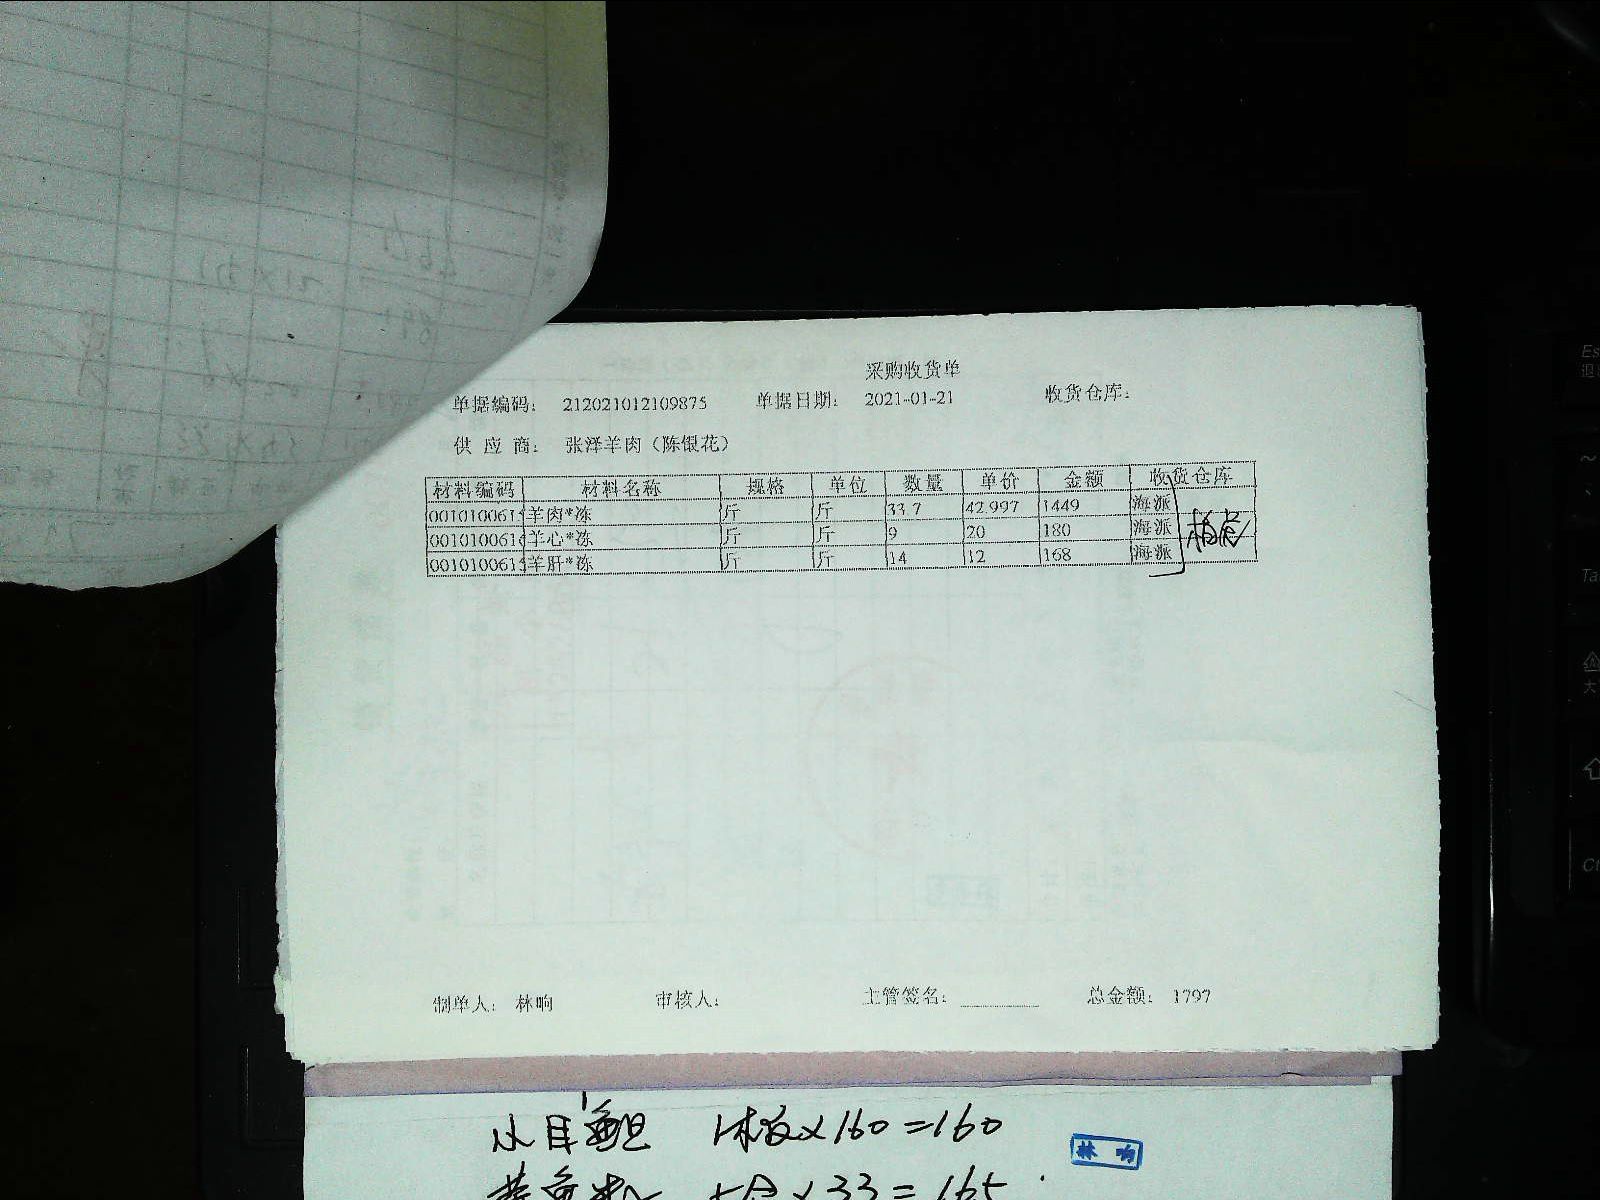 采购收货单
单据编码： 212021012109875 单据日期： 2021-01-21 收货仓库：
供 应 商： 张泽羊肉（陈银花）
材料编码 材料名称 规格 单位 数量 单价 金额 收货仓库
001010061 羊肉*冻 斤 斤 33.7 42.997 1449 海派
001010061 羊心*冻 斤 斤 9 20 180 海派
001010061 羊肝*冻 斤 斤 14 12 168 海派
制单人： 林响 审核人： 主管签名： 总金额： 1797
x160=160
林 响
x33=165